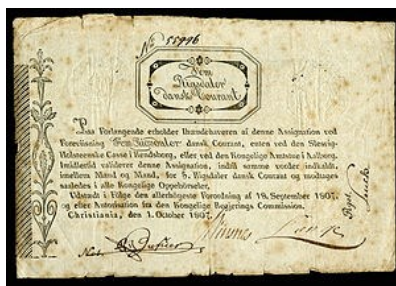 No 55996
Fem
Rigsdaler
dansk Courant.
Paa Forlangende erholder Ihændehaveren af denne Assignation ved
Foreviisning Fem Rigsdaler dansk Courant, enten ved den Slesvig-
Holsteenske Casse i Rendsborg, eller ved den Kongelige Amtstue i Aalborg.
Imidlertid validerer denne Assignation, indtil samme vorder indkaldt,
imellem Mand og Mand, for 5 Rigsdaler dansk Courant og modtages
saaledes i alle Kongelige Oppebørseler.
Udstedt i Følge den allerhøieste Forordning af 18. September 1807.
og efter Autorisation fra den Kongelige Regjerings Commission.
Christiania, den 1. October 1807.
Not.